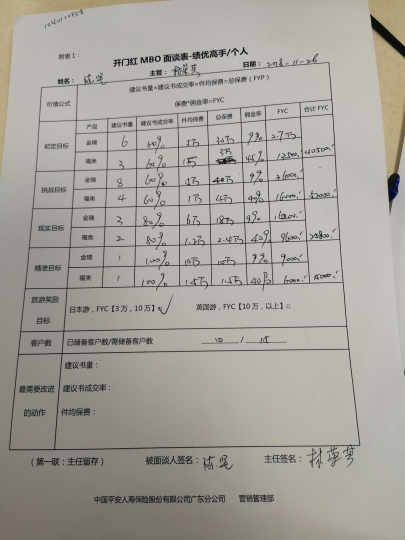 附表1：
开门红 MBO 面谈表-绩优高手/个人
姓名： 主管： 日期：2018-11-26
价值公式 建议书量×建议书成交率×件均保费=总保费（FYP）
保费*佣金率=FYC
产品 建议书量 建议书成交率 件均保费 总保费 佣金率 FYC 合计 FYC
初定目标 金瑞 6 60% 5万 30万 9% 2.7万
福类 3 60% 1万 3万 45% 13500 40500
挑战目标 金瑞 8 60% 5万 40万 9% 36000
福类 4 60% 1万 4万 40% 16000 52000
现实目标 金瑞 3 80% 6万 18万 9% 16200
福类 2 80% 1.2万 2.4万 40% 9600
精准目标 金瑞 1 100% 10万 10万 9% 9000
福类 1 100% 1.5万 1.5万 40% 6000 15000
旅游奖励目标 日本游，FYC【3 万，10 万】√ 英国游，FYC【10 万，以上】□
客户数 已储备客户数/需储备客户数 10 / 15
最需要改进的动作 建议书量：
建议书成交率：
件均保费：
（第一联：主任留存） 被面谈人签名： 主任签名：
中国平安人寿保险股份有限公司广东分公司 营销管理部